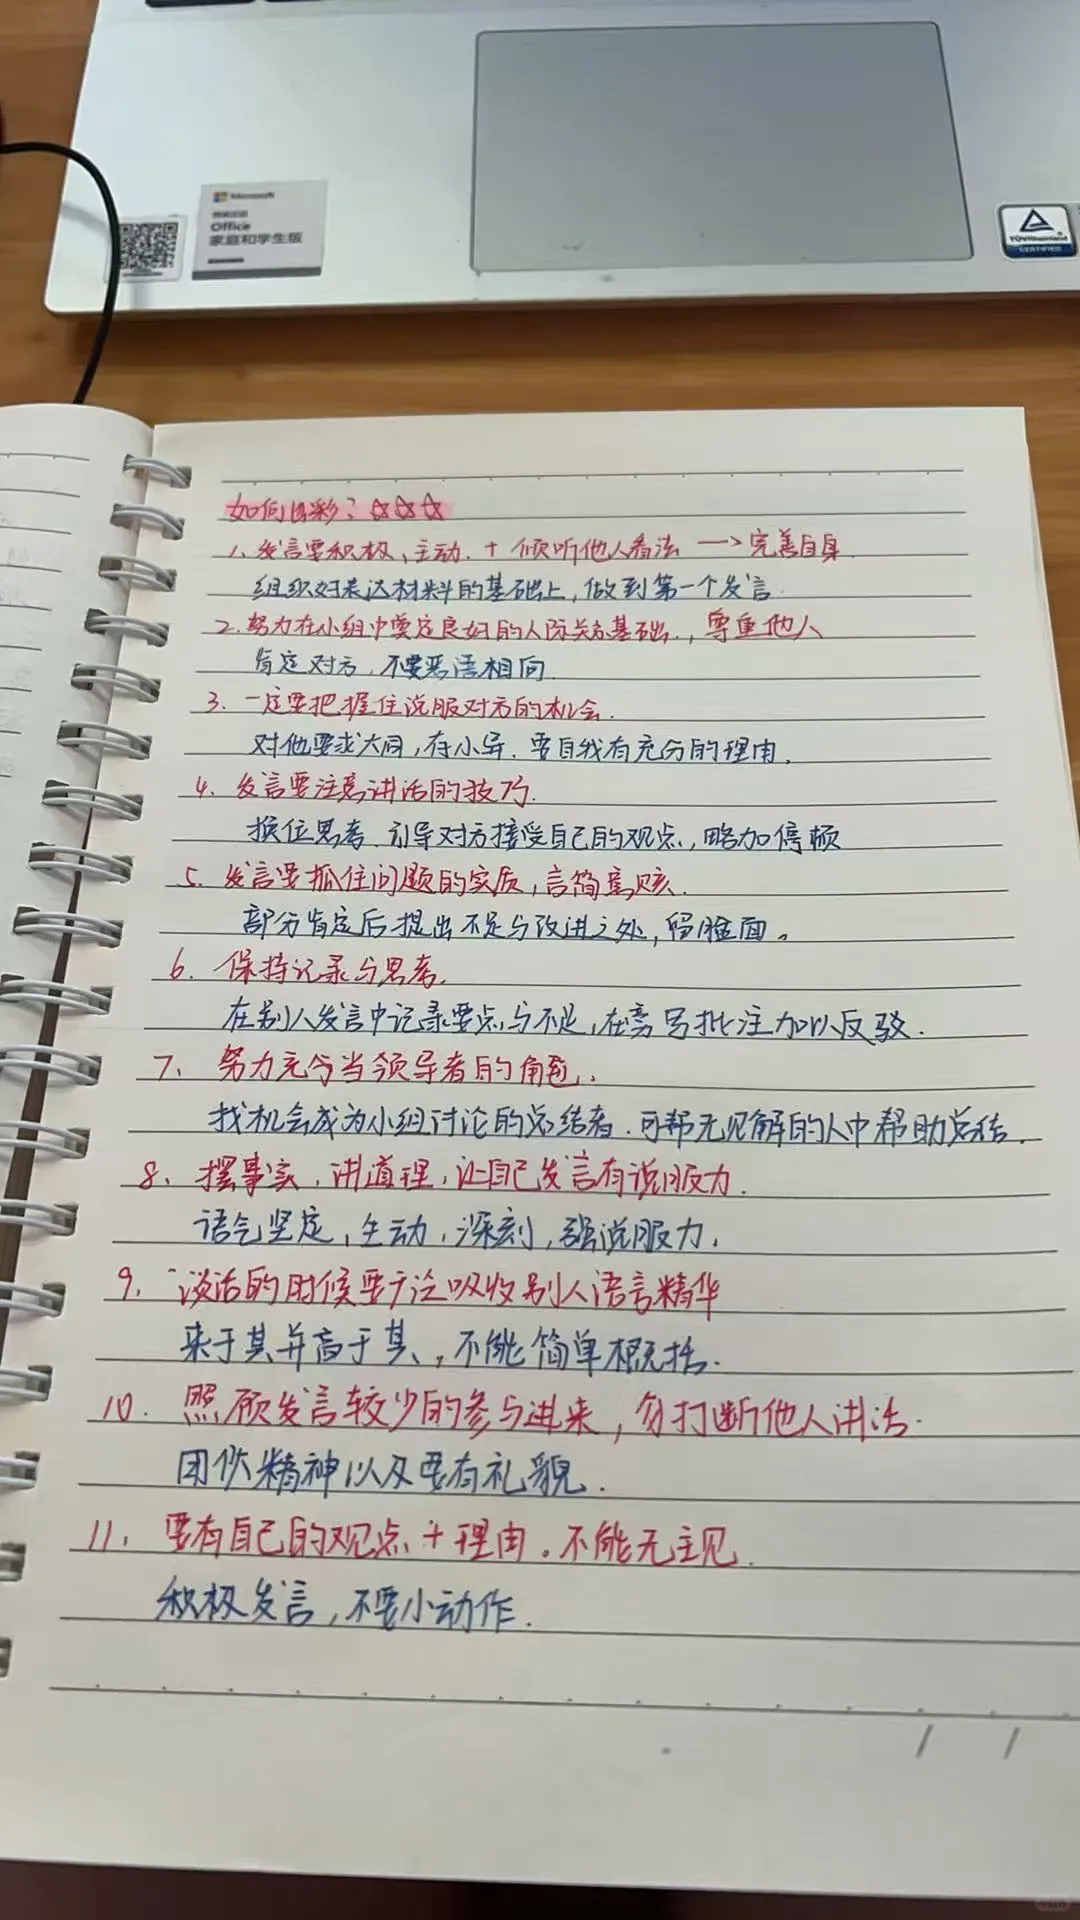 Microsoft
Office
家庭和学生版
TÜVRheinland
CERTIFIED
如何出彩？☆☆☆
1、发言要积极、主动.+ 倾听他人看法 —> 完善自身.
组织好表达材料的基础上，做到第一个发言.
2.努力在小组中奠定良好的人际关系基础.，尊重他人
肯定对方，不要恶语相向.
3. 一定要把握住说服对方的机会.
对他要求大同，存小异.要自我有充分的理由.
4. 发言要注意讲话的技巧.
换位思考.引导对方接受自己的观点.略加停顿
5. 发言要抓住问题的实质，言简意赅.
部分肯定后提出不足与改进之处，留脸面。
6. 保持记录与思考.
在别人发言中记录要点与不足，在旁批注加以反驳.
7、努力充分当领导者的角色.
找机会成为小组讨论的总结者.可帮无见解的人中帮助总结.
8、摆事实，讲道理，让自己发言有说服力.
语气坚定，生动，深刻，强说服力.
9. 谈话的时候要于论吸收别人语言精华
来于其并高于其，不能简单概括.
10. 照顾发言较少的参与进来，勿打断他人讲话.
团伙精神以及要有礼貌.
11. 要有自己的观点+理由。不能无主见.
积极发言，不要小动作.
/ /